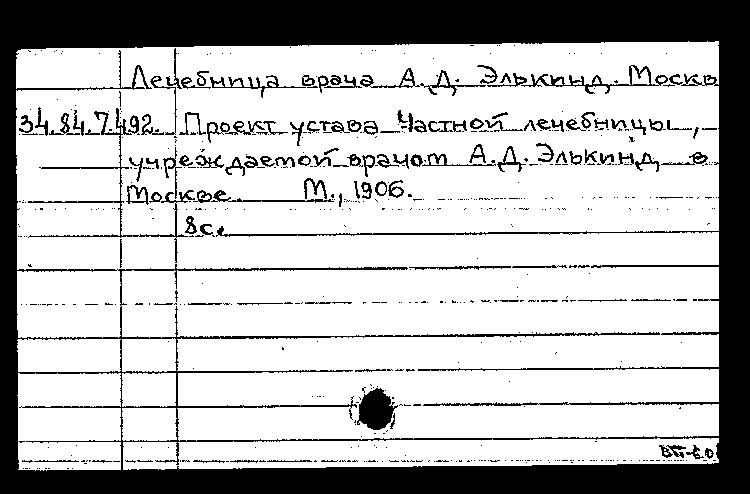 Лечебница врача А.Д. Элькинд. Москв
34.84.7.492. Проект устава Частной лечебницы,
учреждаемой врачом А.Д. Элькинд в
Москве. М., 1906.
8с.